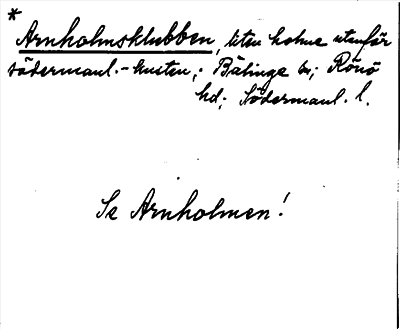 *
Arnholmsklubben, liten holme utanför
södermanl.-kusten,. Bälinge sn; Rönö
hd; Södermanl. l.
Se Arnholmen!